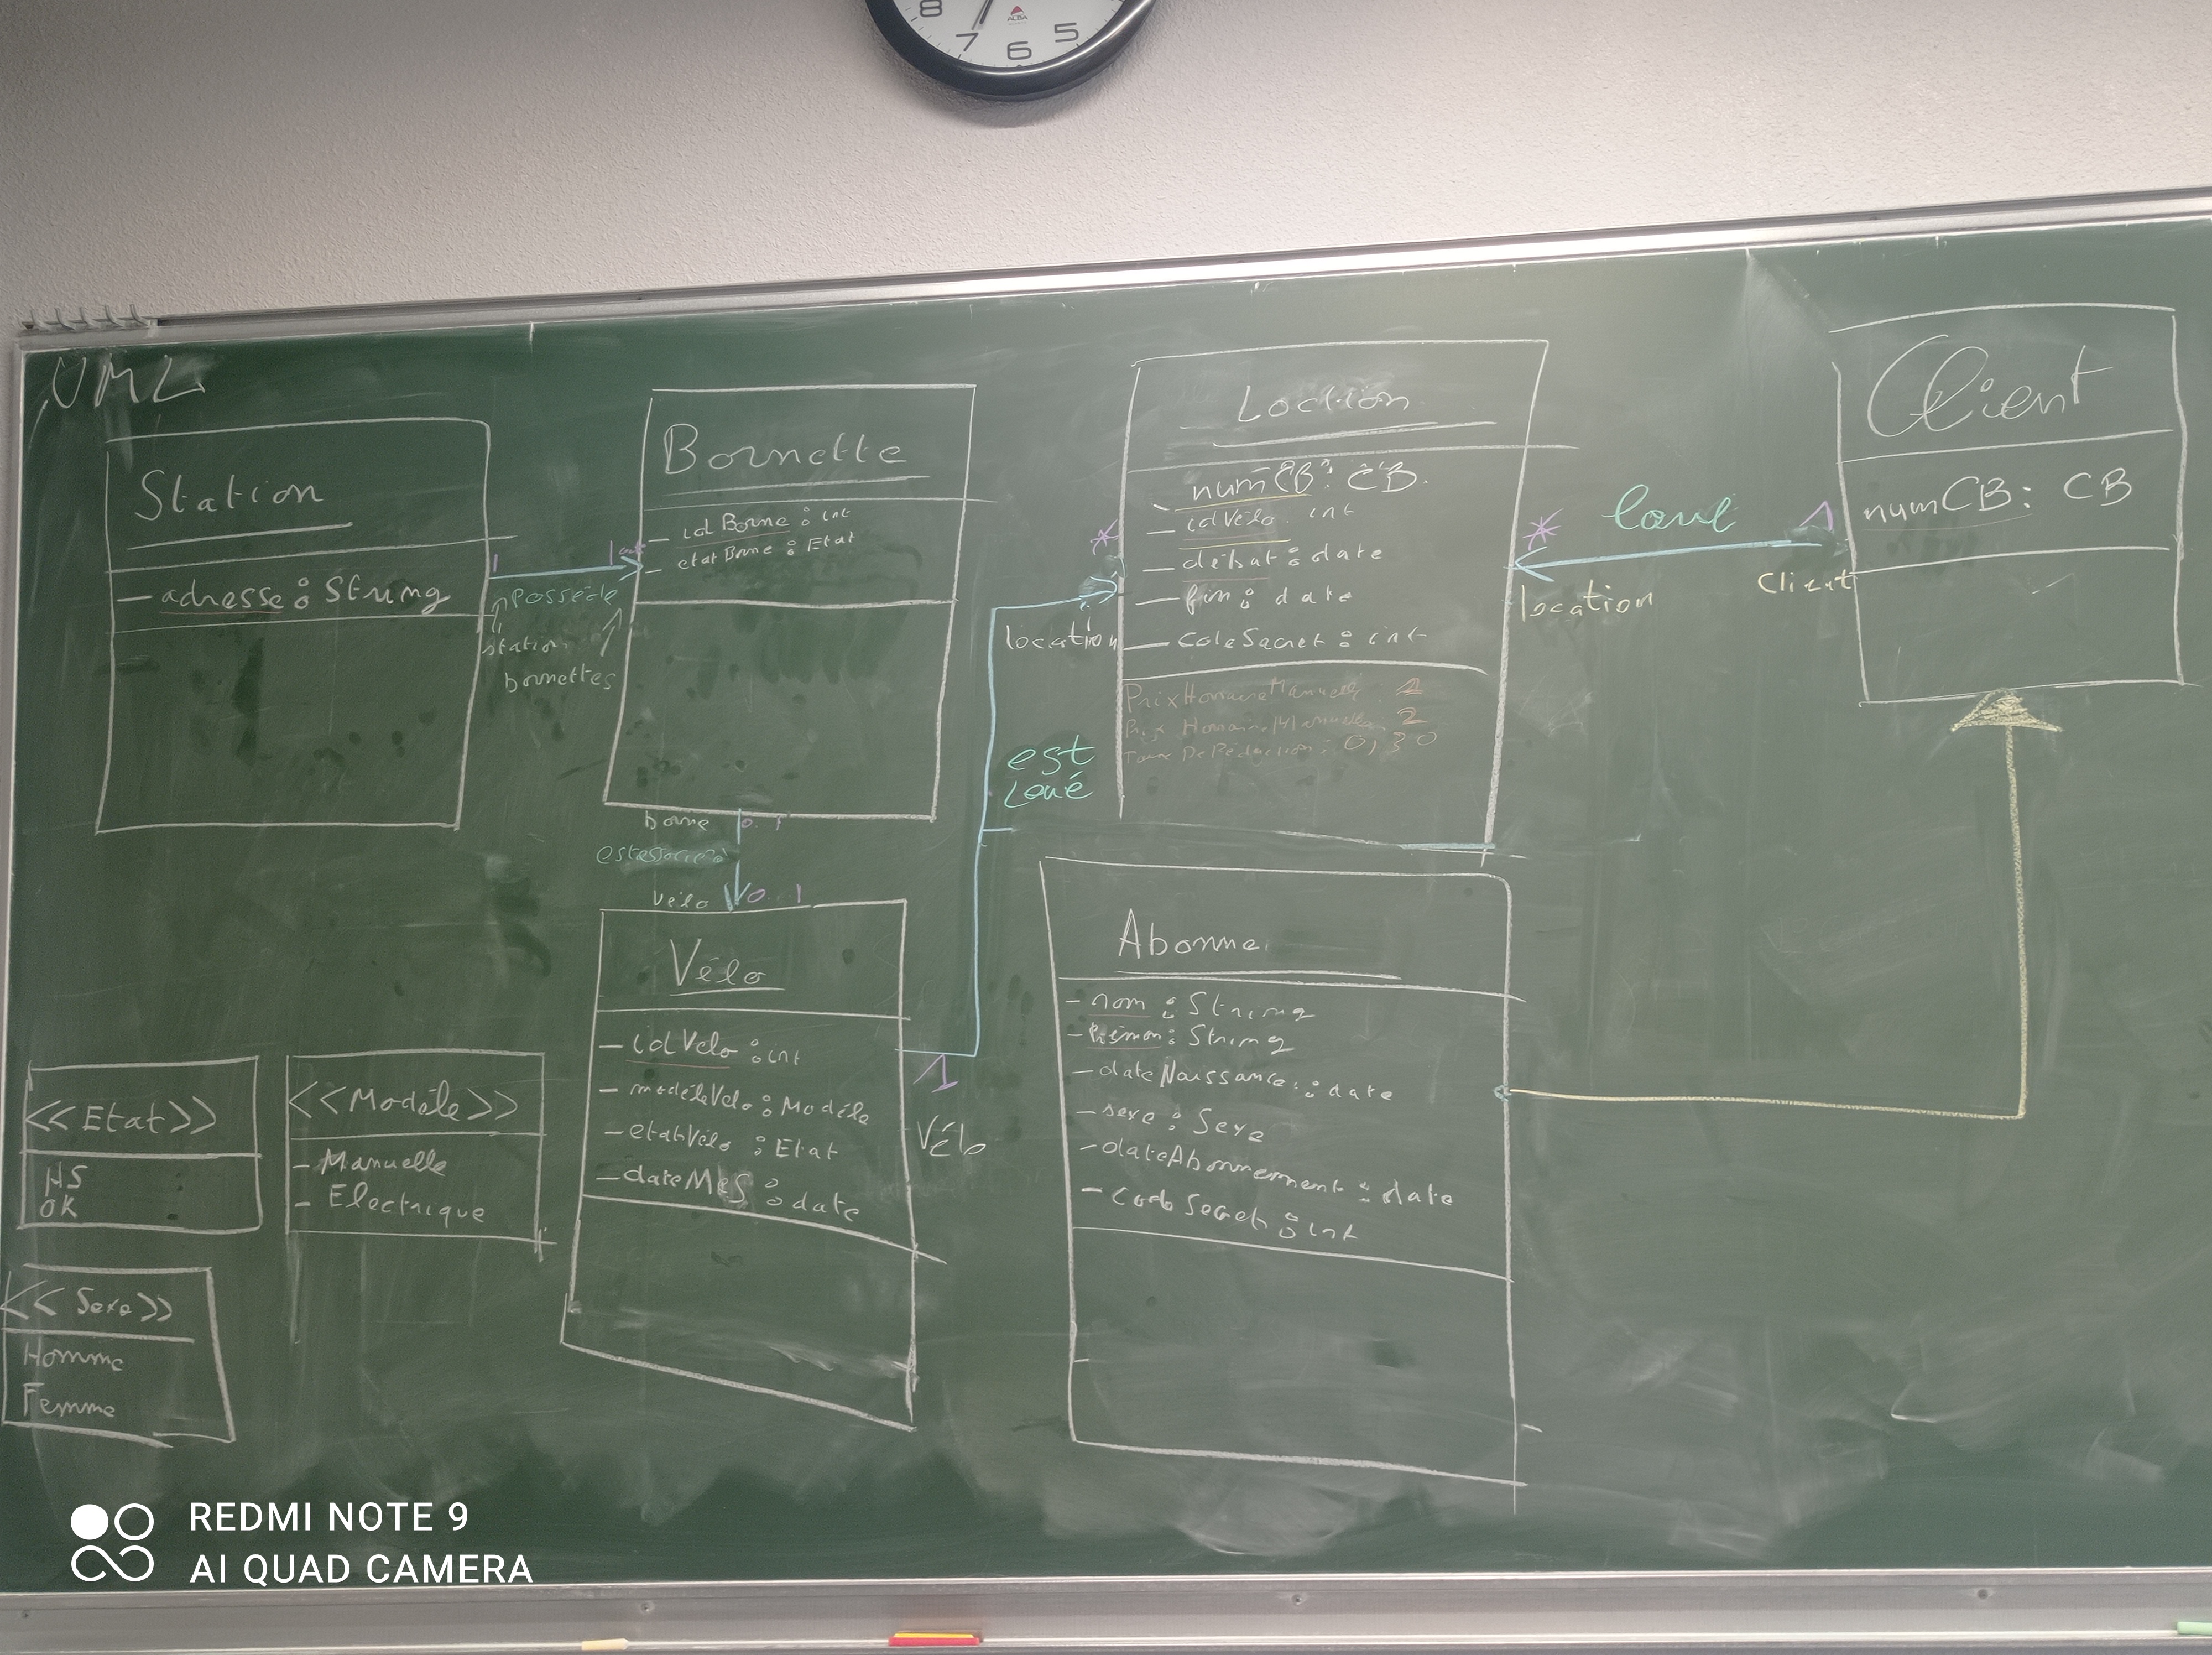 8
7
6
5
ALBA
UML
Station
— adresse : String
1
1..*
Possède
station
bornettes
Bornette
— idBorne : int
— etatBorne : Etat
borne 0..1
est associé
vélo 0..1
Vélo
— idVelo : int
— modèleVelo : Modèle
— etatVélo : Etat
— dateMeS : date
1
Vélo
est
Loué
*
location
Loction
numCB : CB
— idVélo : int
— début : date
— fin : date
— codeSecret : int
PrixHoraireManuelle : 1
Prix Horaire Manuelle 2
Taux De Réduction : 0,30
*
loue
1
location
Client
Client
numCB : CB
Abonne
- nom : String
- Prénom : String
- dateNaissance : date
- sexe : Sexe
- dateAbonnement : date
- Code Secret : int
<<Etat>>
HS
OK
<<Modèle>>
- Manuelle
- Electrique
<<Sexe>>
Homme
Femme
REDMI NOTE 9
AI QUAD CAMERA